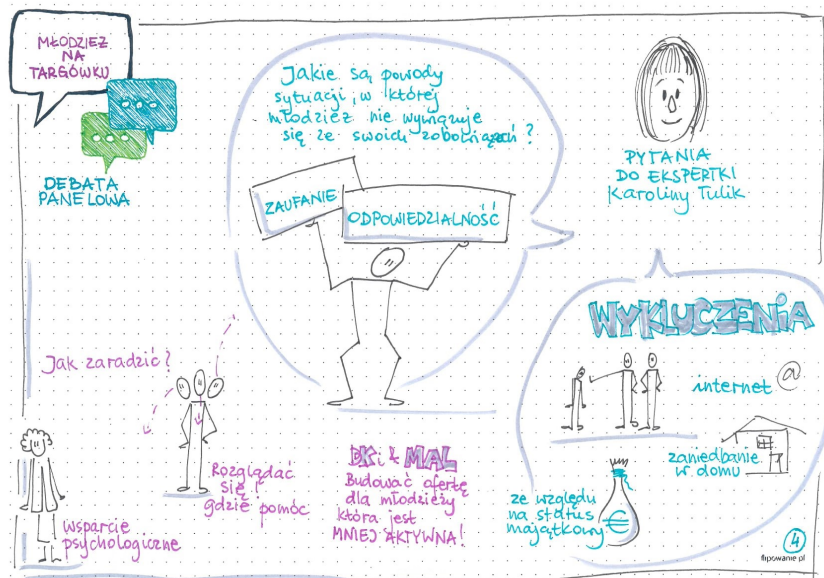 MŁODZIEŻ
NA
TARGÓWKU
DEBATA
PANELOWA
Jakie są powody
sytuacji, w której
młodzież nie wywiązuje
się ze swoich zobowiązań?
ZAUFANIE
ODPOWIEDZIALNOŚĆ
PYTANIA
DO EKSPERTKI
Karoliny Tulik
WYKLUCZENIA
internet @
zaniedbanie
w domu
ze względu
na status
majątkowy
€
Jak zaradzić?
wsparcie
psychologiczne
Rozglądać
się!
gdzie pomóc
DKi & MAL
Budować ofertę
dla młodzieży
która jest
MNIEJ AKTYWNA!
4
flipowanie.pl